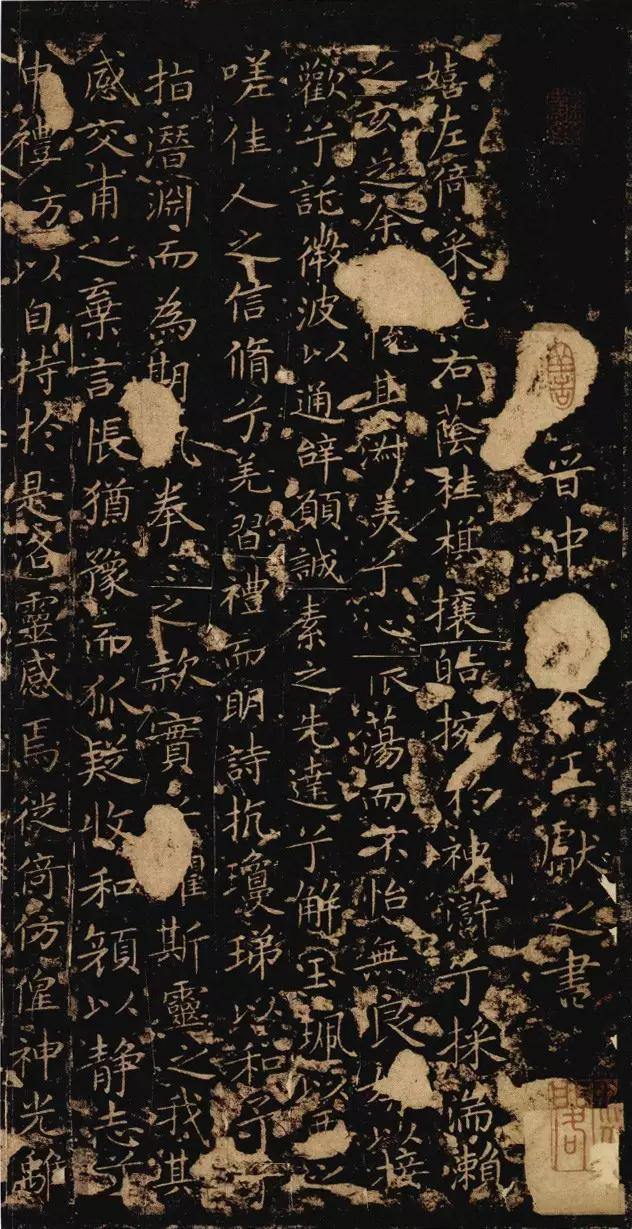 晉中令王獻之書
嬉左倚采旄右蔭桂旗攘皓捥於神滸兮採湍瀨
之玄芝余悅其淑美兮心振蕩而不怡無良媒以接
歡兮託微波以通辭願誠素之先達兮解玉珮以要之
嗟佳人之信脩兮羌習禮而明詩抗瓊珶以和予兮
指潛淵而為期執拳〻之款實兮懼斯靈之我欺
感交甫之棄言悵猶豫而狐疑收和顏以静志兮
申禮方以自持於是洛靈感焉徙倚仿偟神光離